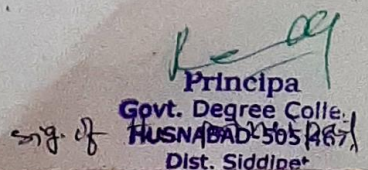 Principa
Govt. Degree Colle.
sig. of HUSNABAD-505467
Dist. Siddipet